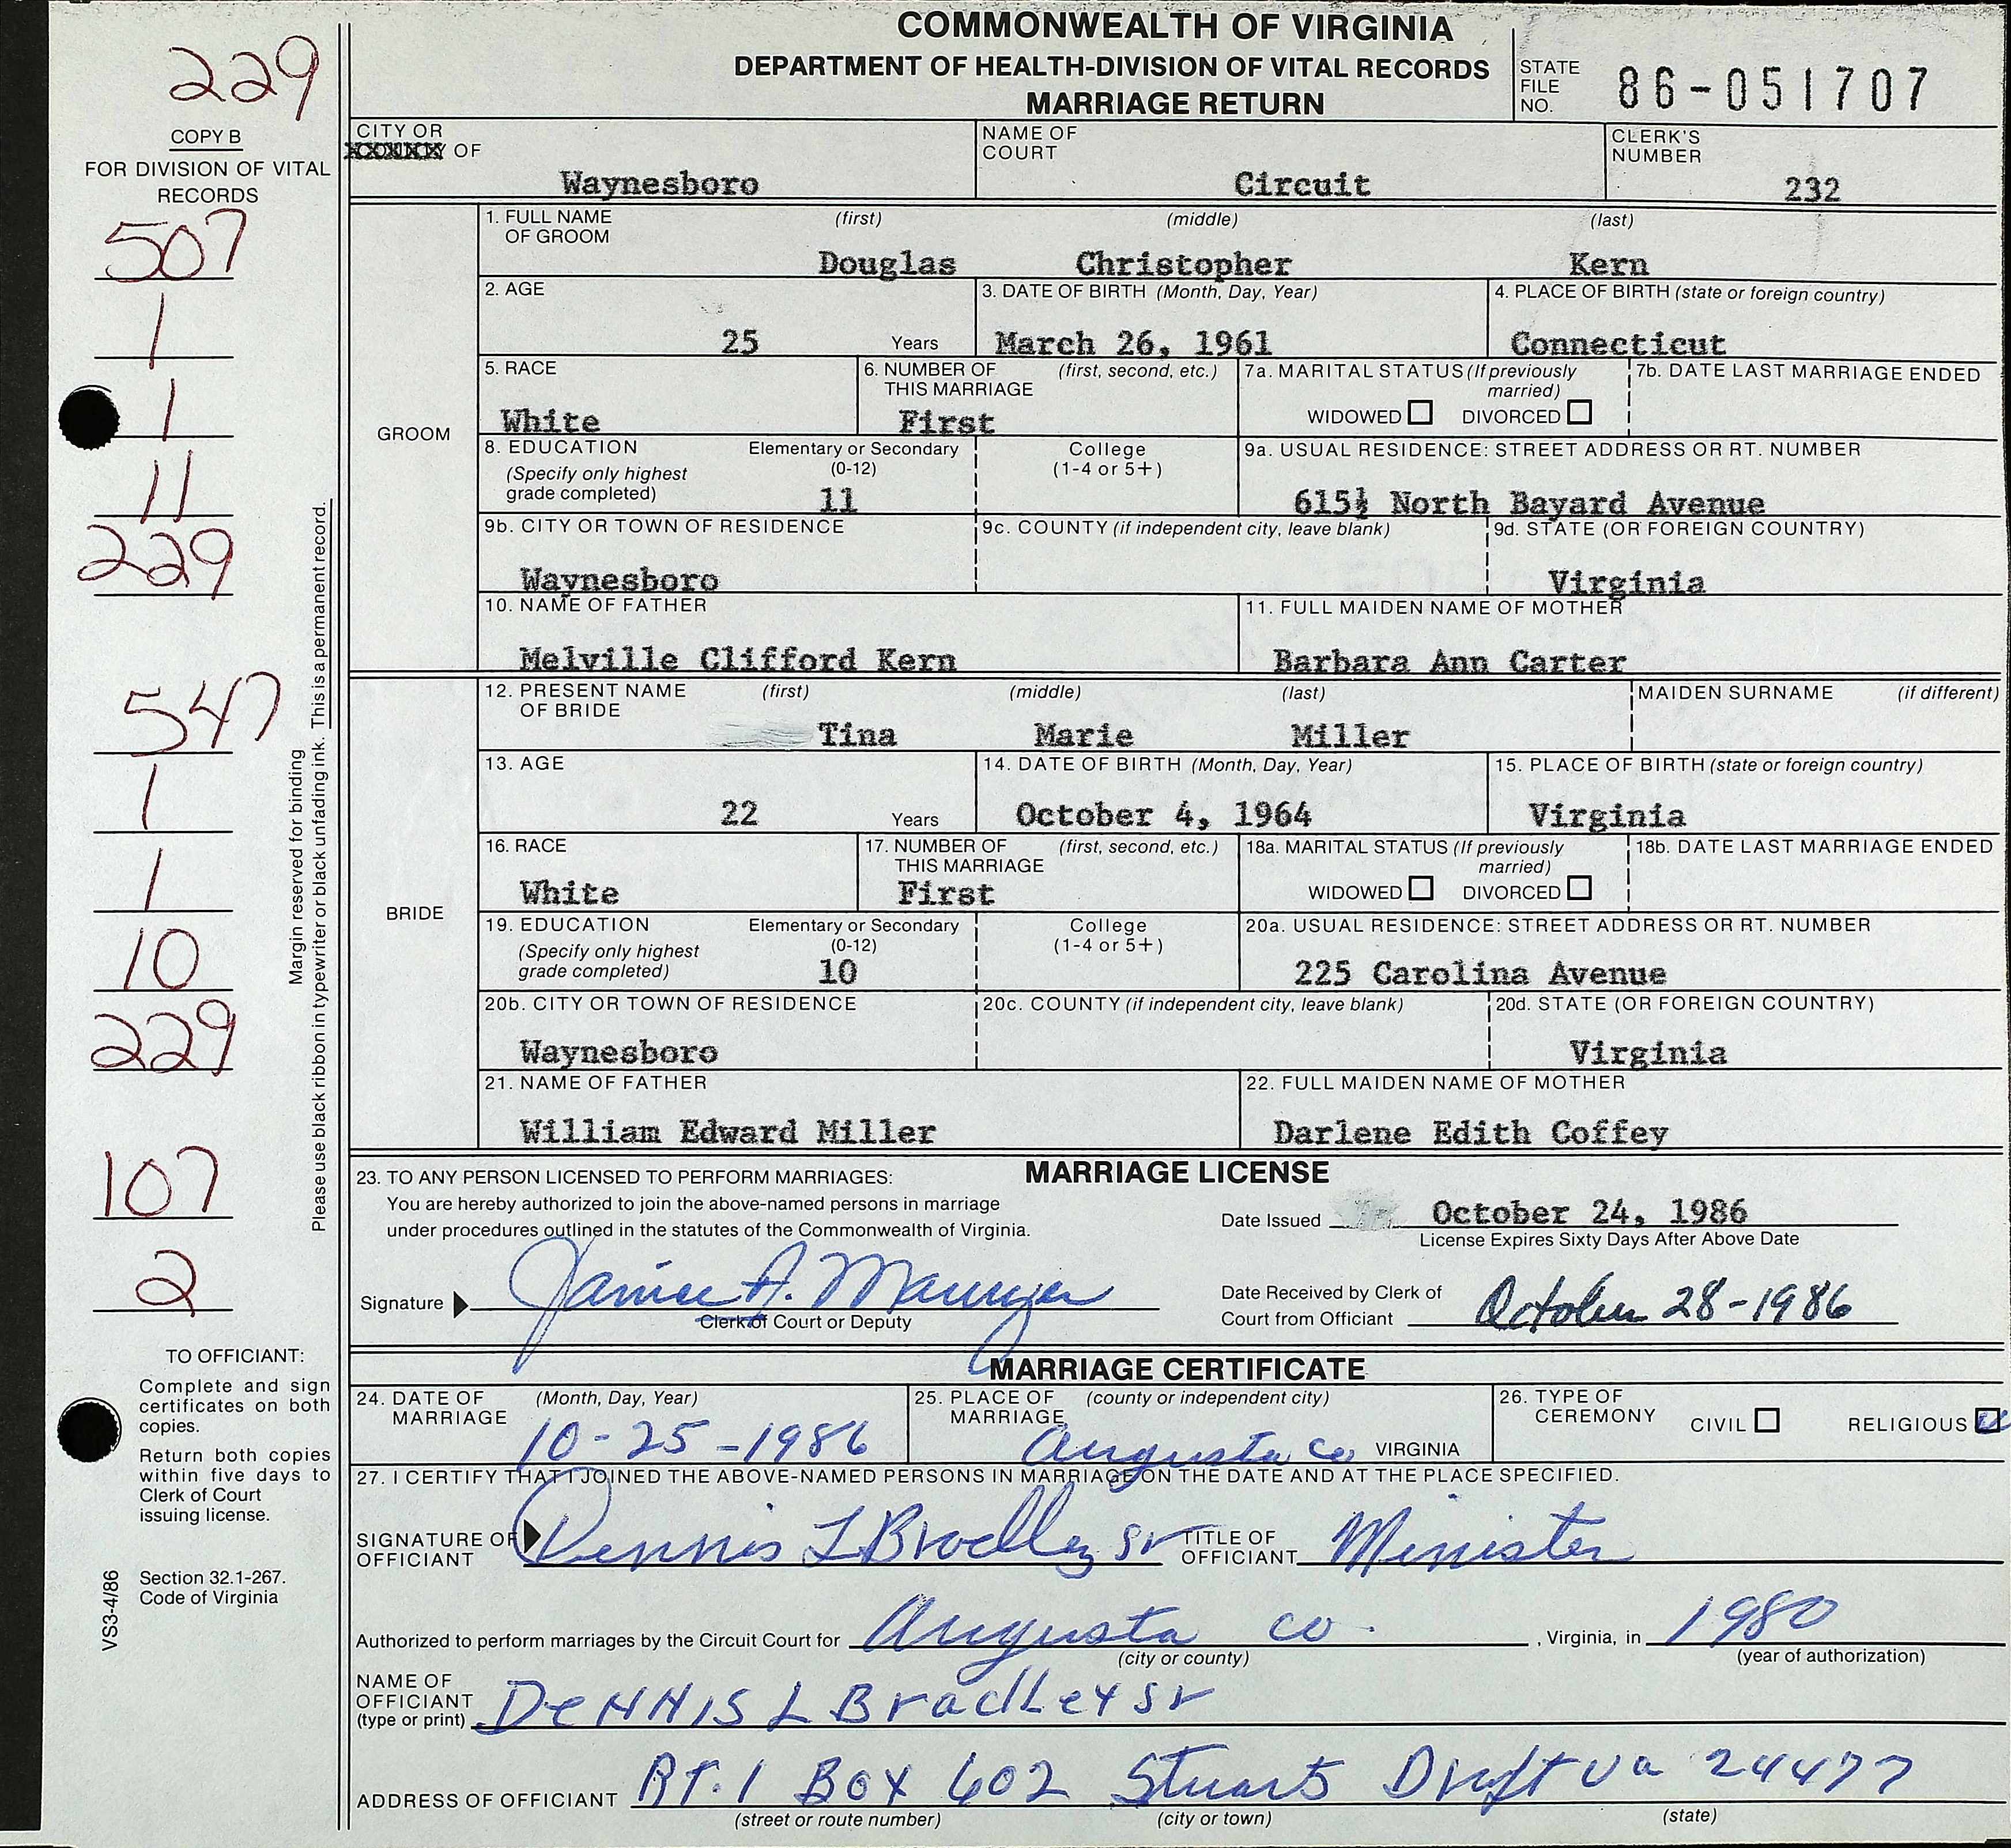 COMMONWEALTH OF VIRGINIA
DEPARTMENT OF HEALTH-DIVISION OF VITAL RECORDS
MARRIAGE RETURN
STATE FILE NO. 86-051707
229
COPY B
FOR DIVISION OF VITAL RECORDS
507
1
1
11
229
547
1
1
10
229
107
2
Margin reserved for binding
Please use black ribbon in typewriter or black unfading ink. This is a permanent record.
TO OFFICIANT:
Complete and sign
certificates on both
copies.
Return both copies
within five days to
Clerk of Court
issuing license.
Section 32.1-267.
Code of Virginia
VS3-4/86
CITY OR XXXXXX OF Waynesboro
NAME OF COURT Circuit
CLERK'S NUMBER 232
GROOM
1. FULL NAME OF GROOM (first) Douglas (middle) Christopher (last) Kern
2. AGE 25 Years
3. DATE OF BIRTH (Month, Day, Year) March 26, 1961
4. PLACE OF BIRTH (state or foreign country) Connecticut
5. RACE White
6. NUMBER OF THIS MARRIAGE (first, second, etc.) First
7a. MARITAL STATUS (If previously married) WIDOWED DIVORCED
7b. DATE LAST MARRIAGE ENDED
8. EDUCATION (Specify only highest grade completed) Elementary or Secondary (0-12) 11 College (1-4 or 5+)
9a. USUAL RESIDENCE: STREET ADDRESS OR RT. NUMBER 615½ North Bayard Avenue
9b. CITY OR TOWN OF RESIDENCE Waynesboro
9c. COUNTY (if independent city, leave blank)
9d. STATE (OR FOREIGN COUNTRY) Virginia
10. NAME OF FATHER Melville Clifford Kern
11. FULL MAIDEN NAME OF MOTHER Barbara Ann Carter
BRIDE
12. PRESENT NAME OF BRIDE (first) Tina (middle) Marie (last) Miller MAIDEN SURNAME (if different)
13. AGE 22 Years
14. DATE OF BIRTH (Month, Day, Year) October 4, 1964
15. PLACE OF BIRTH (state or foreign country) Virginia
16. RACE White
17. NUMBER OF THIS MARRIAGE (first, second, etc.) First
18a. MARITAL STATUS (If previously married) WIDOWED DIVORCED
18b. DATE LAST MARRIAGE ENDED
19. EDUCATION (Specify only highest grade completed) Elementary or Secondary (0-12) 10 College (1-4 or 5+)
20a. USUAL RESIDENCE: STREET ADDRESS OR RT. NUMBER 225 Carolina Avenue
20b. CITY OR TOWN OF RESIDENCE Waynesboro
20c. COUNTY (if independent city, leave blank)
20d. STATE (OR FOREIGN COUNTRY) Virginia
21. NAME OF FATHER William Edward Miller
22. FULL MAIDEN NAME OF MOTHER Darlene Edith Coffey
MARRIAGE LICENSE
23. TO ANY PERSON LICENSED TO PERFORM MARRIAGES:
You are hereby authorized to join the above-named persons in marriage
under procedures outlined in the statutes of the Commonwealth of Virginia.
Date Issued October 24, 1986
License Expires Sixty Days After Above Date
Signature A.
Clerk of Court or Deputy
Date Received by Clerk of Court from Official October 28-1986
MARRIAGE CERTIFICATE
24. DATE OF MARRIAGE (Month, Day, Year) 10-25-1986
25. PLACE OF MARRIAGE (county or independent city) Augusta Co VIRGINIA
26. TYPE OF CEREMONY CIVIL RELIGIOUS
27. I CERTIFY THAT I JOINED THE ABOVE-NAMED PERSONS IN MARRIAGE ON THE DATE AND AT THE PLACE SPECIFIED.
SIGNATURE OF OFFICIANT Dennis L Bradley Sr TITLE OF OFFICIANT Minister
Authorized to perform marriages by the Circuit Court for Augusta Co. , Virginia, in 1980
(city or county) (year of authorization)
NAME OF OFFICIANT (type or print) DeNNIS L BradLey Sr
ADDRESS OF OFFICIANT RT. 1 Box 602 Stuarts Draft Va 24477
(street or route number) (city or town) (state)